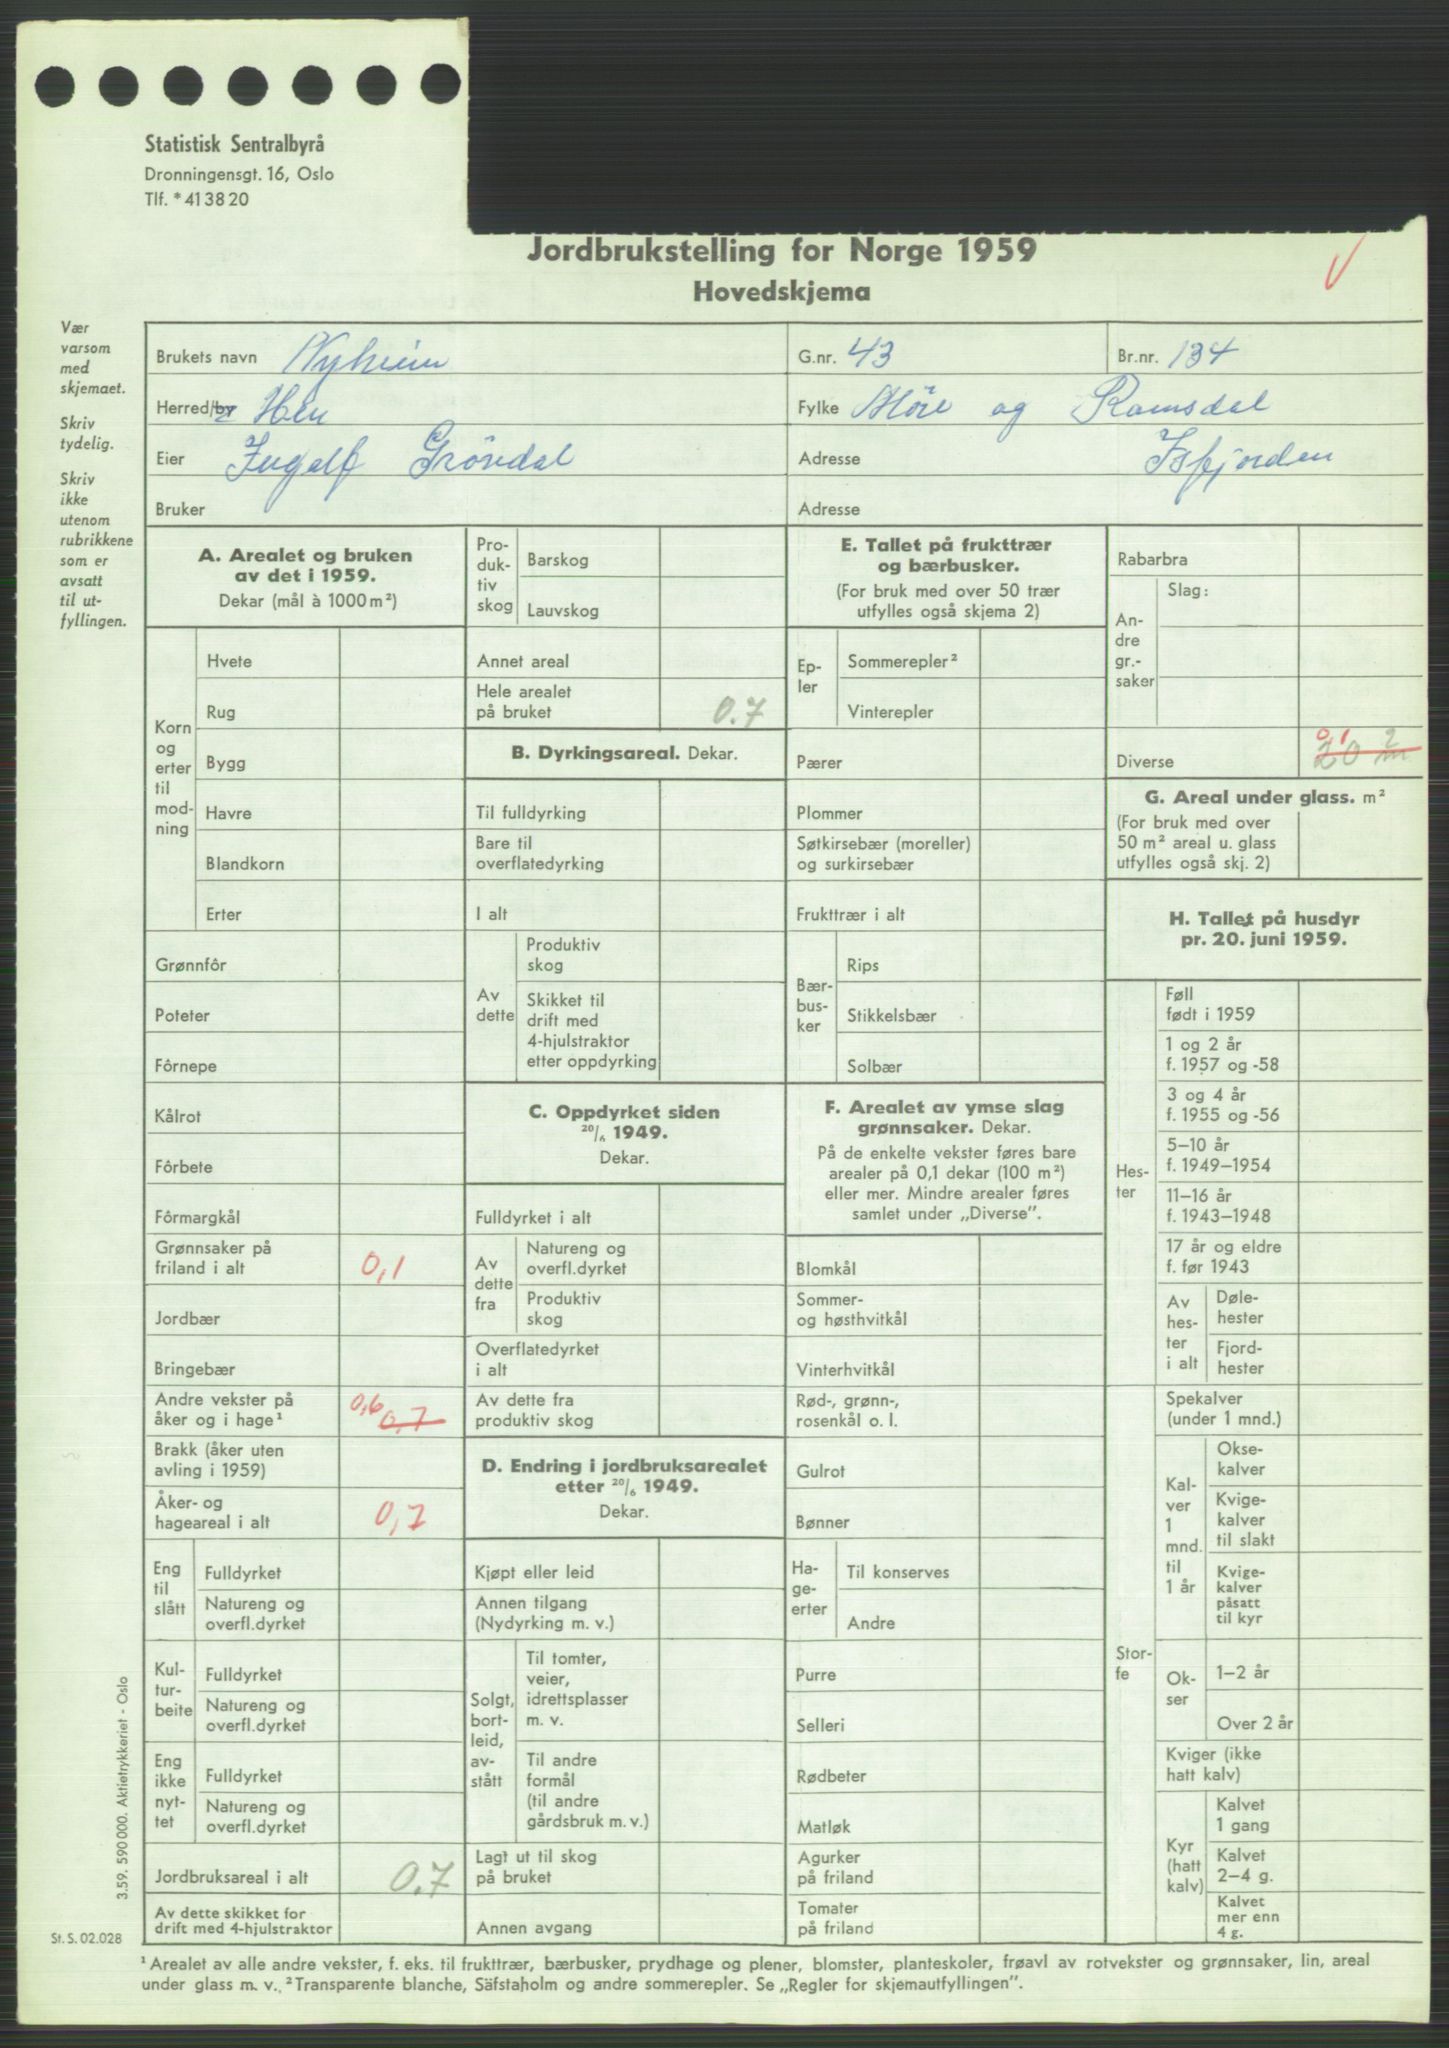 Statistisk Sentralbyrå
Dronningensgt. 16, Oslo
Tlf. * 41 38 20
Jordbrukstelling for Norge 1959
Hovedskjema
V
Vær
varsom
med
skjemaet.
Skriv
tydelig.
Skriv
ikke
utenom
rubrikkene
som er
avsatt
til ut-
fyllingen.
Brukets navn Nyheim
G.nr. 43
Br.nr. 134
Herred/by Hen
Fylke Möre og Romsdal
Eier Ingolf Gröndal
Adresse Isfjorden
Bruker
Adresse
A. Arealet og bruken
av det i 1959.
Dekar (mål à 1000 m²)
Korn
og
erter
til
mod-
ning
Hvete
Rug
Bygg
Havre
Blandkorn
Erter
Grønnfôr
Poteter
Fôrnepe
Kålrot
Fôrbete
Fôrmargkål
Grønnsaker på
friland i alt 0,1
Jordbær
Bringebær
Andre vekster på
åker og i hage¹ 0,6 0,7
Brakk (åker uten
avling i 1959)
Åker- og
hageareal i alt 0,7
Eng
til
slått
Fulldyrket
Natureng og
overfl.dyrket
Kul-
tur-
beite
Fulldyrket
Natureng og
overfl.dyrket
Eng
ikke
nyt-
tet
Fulldyrket
Natureng og
overfl.dyrket
Jordbruksareal i alt 0.7
Av dette skikket for
drift med 4-hjulstraktor
Pro-
duk-
tiv
skog
Barskog
Lauvskog
Annet areal
Hele arealet
på bruket 0.7
B. Dyrkingsareal. Dekar.
Til fulldyrking
Bare til
overflatedyrking
I alt
Av
dette
Produktiv
skog
Skikket til
drift med
4-hjulstraktor
etter oppdyrking
C. Oppdyrket siden
20/6 1949.
Dekar.
Fulldyrket i alt
Av
dette
fra
Natureng og
overfl.dyrket
Produktiv
skog
Overflatedyrket
i alt
Av dette fra
produktiv skog
D. Endring i jordbruksarealet
etter 20/6 1949.
Dekar.
Kjøpt eller leid
Annen tilgang
(Nydyrking m. v.)
Solgt,
bort-
leid,
av-
stått
Til tomter,
veier,
idrettsplasser
m. v.
Til andre
formål
(til andre
gårdsbruk m. v.)
Lagt ut til skog
på bruket
Annen avgang
E. Tallet på frukttrær
og bærbusker.
(For bruk med over 50 trær
utfylles også skjema 2)
Ep-
ler
Sommerepler²
Vinterepler
Pærer
Plommer
Søtkirsebær (moreller)
og surkirsebær
Frukttrær i alt
Bær-
bus-
ker
Rips
Stikkelsbær
Solbær
F. Arealet av ymse slag
grønnsaker. Dekar.
På de enkelte vekster føres bare
arealer på 0,1 dekar (100 m²)
eller mer. Mindre arealer føres
samlet under „Diverse”.
Blomkål
Sommer-
og høsthvitkål
Vinterhvitkål
Rød-, grønn-,
rosenkål o. l.
Gulrot
Bønner
Ha-
ge-
erter
Til konserves
Andre
Purre
Selleri
Rødbeter
Matløk
Agurker
på friland
Tomater
på friland
Rabarbra
An-
dre
gr.-
saker
Slag:
Diverse 0,1 20 m²
G. Areal under glass. m²
(For bruk med over
50 m² areal u. glass
utfylles også skj. 2)
H. Tallet på husdyr
pr. 20. juni 1959.
Hes-
ter
Føll
født i 1959
1 og 2 år
f. 1957 og -58
3 og 4 år
f. 1955 og -56
5–10 år
f. 1949–1954
11–16 år
f. 1943–1948
17 år og eldre
f. før 1943
Av
hes-
ter
i alt
Døle-
hester
Fjord-
hester
Stor-
fe
Spekalver
(under 1 mnd.)
Kal-
ver
1
mnd.
til
1 år
Okse-
kalver
Kvige-
kalver
til slakt
Kvige-
kalver
påsatt
til kyr
Ok-
ser
1–2 år
Over 2 år
Kviger (ikke
hatt kalv)
Kyr
(hatt
kalv)
Kalvet
1 gang
Kalvet
2–4 g.
Kalvet
mer enn
4 g.
3.59. 590 000. Aktietrykkeriet - Oslo
St. S. 02.028
¹ Arealet av alle andre vekster, f. eks. til frukttrær, bærbusker, prydhage og plener, blomster, planteskoler, frøavl av rotvekster og grønnsaker, lin, areal
under glass m. v. ² Transparente blanche, Säfstaholm og andre sommerepler. Se „Regler for skjemautfyllingen”.